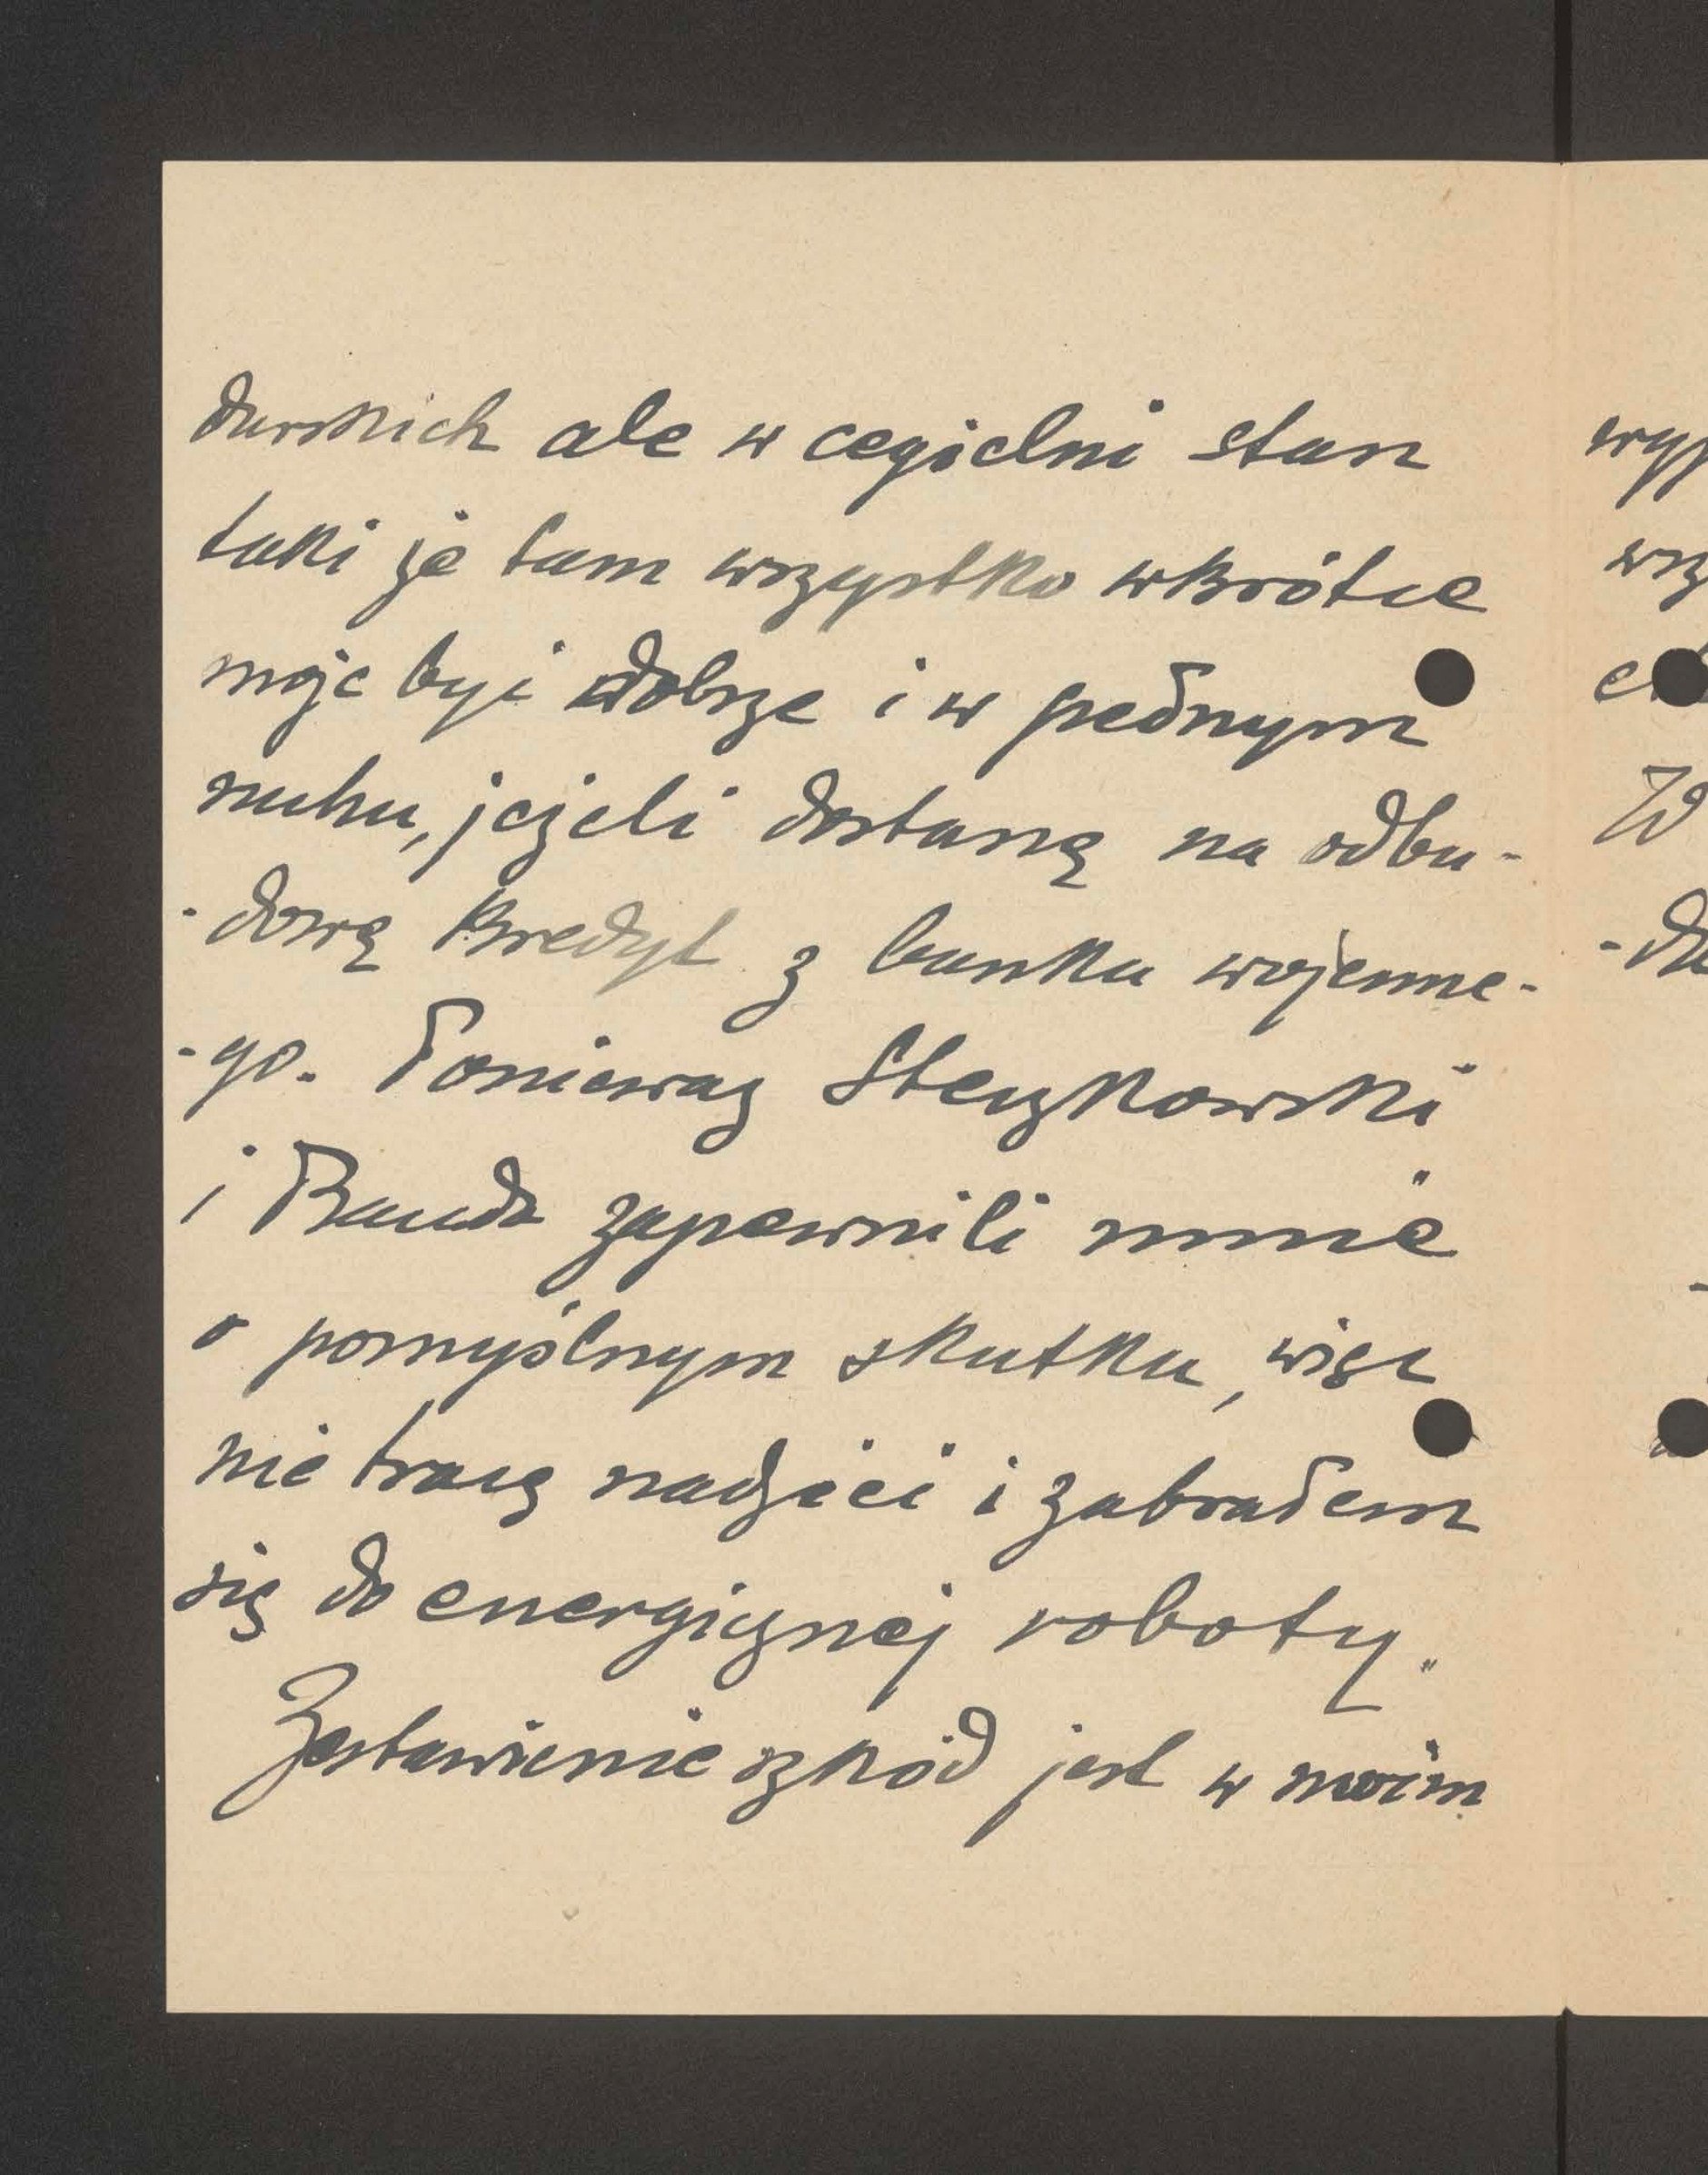 darskich ale w cegielni stan
taki że tam wszystko wkrótce
może być dobrze i w pełnym
ruchu, jeżeli dostanę na odbu-
-dowę kredyt z banku wojenne-
-go. Ponieważ Steczkowski
i Banda zapewnili mnie
o pomyślnym skutku, więc
nie tracę nadziei i zabrałem
się do energicznej roboty.
Zestawienie szkód jest w moim